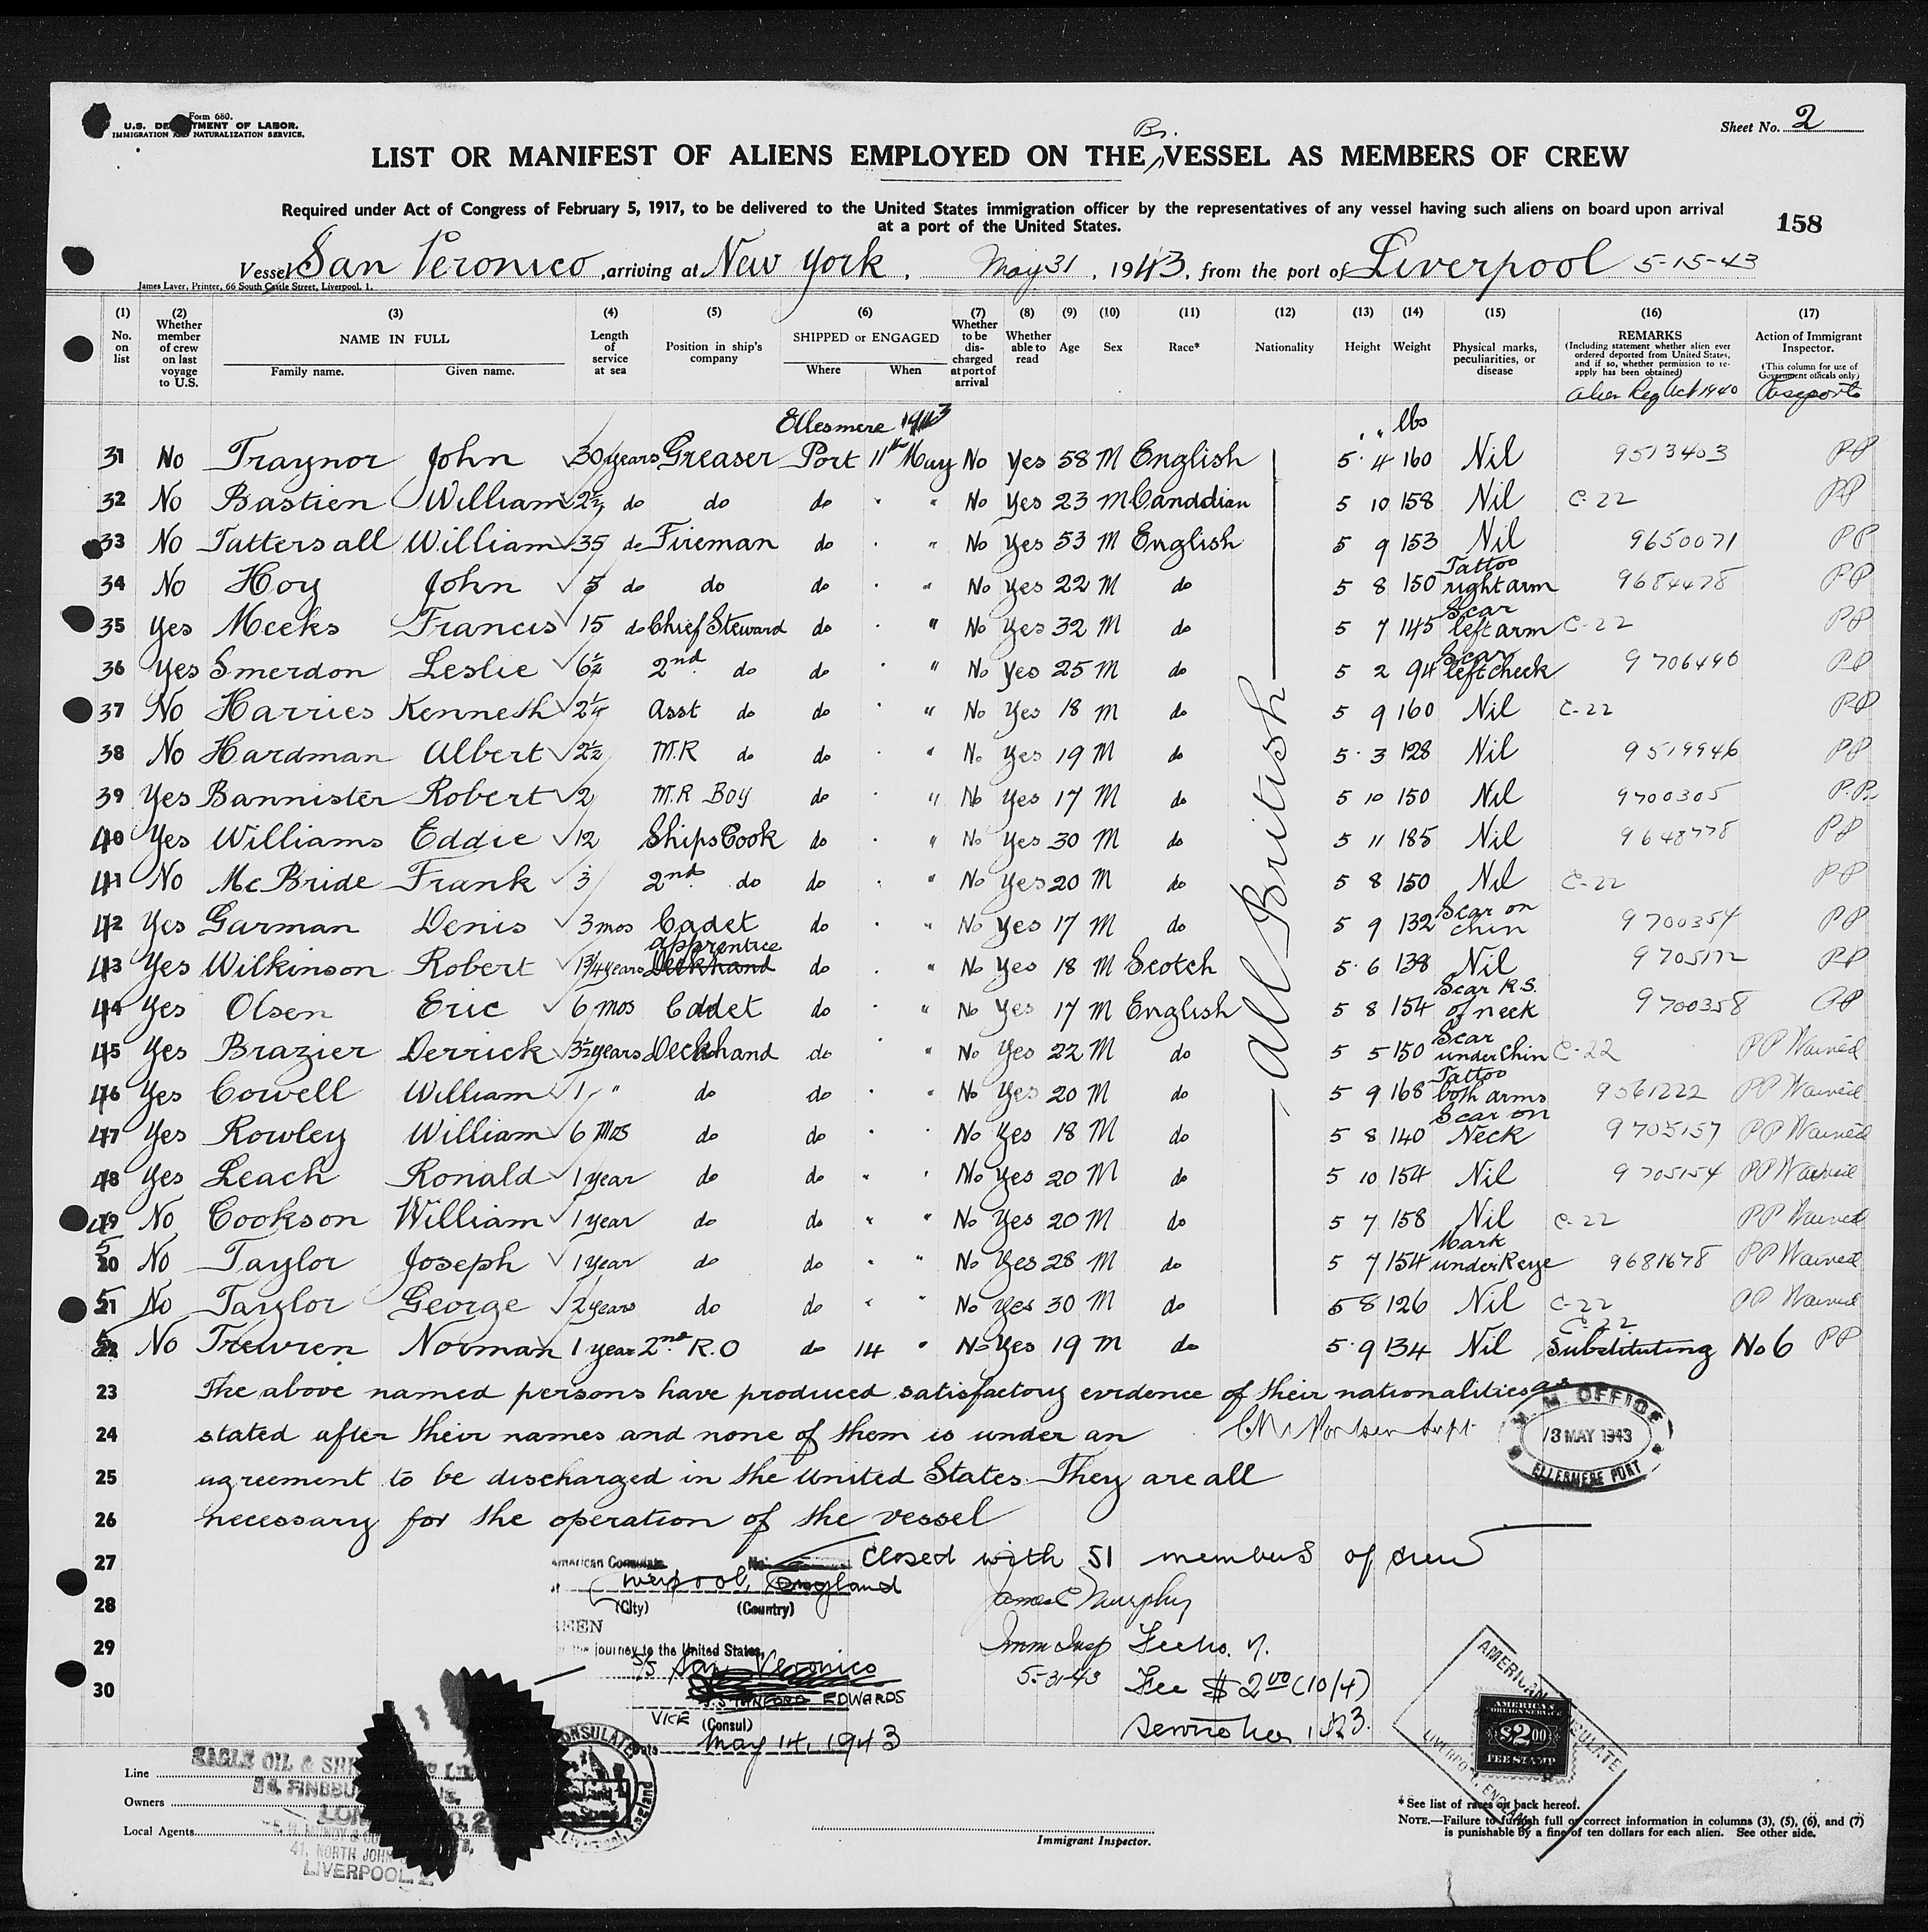 Form 680.
U.S. DEPARTMENT OF LABOR.
IMMIGRATION AND NATURALIZATION SERVICE.
Sheet No. 2
Br.
LIST OR MANIFEST OF ALIENS EMPLOYED ON THE VESSEL AS MEMBERS OF CREW
Required under Act of Congress of February 5, 1917, to be delivered to the United States immigration officer by the representatives of any vessel having such aliens on board upon arrival
at a port of the United States.
158
Vessel San Veronico, arriving at New York, May 31, 1943, from the port of Liverpool 5-15-43
James Laver, Printer, 66 South Castle Street, Liverpool, 1.
(1) No. on list (2) Whether member of crew on last voyage to U.S. (3) NAME IN FULL Family name. Given name. (4) Length of service at sea (5) Position in ship's company (6) SHIPPED or ENGAGED Where When (7) Whether to be discharged at port of arrival (8) Whether able to read (9) Age (10) Sex (11) Race* (12) Nationality (13) Height (14) Weight (15) Physical marks, peculiarities, or disease (16) REMARKS (Including statement whether alien ever ordered deported from United States, and if so, whether permission to re-apply has been obtained) (17) Action of Immigrant Inspector. (This column for use of Government officials only)
Alien Reg Act 1940 Passports
Ellesmere 1943 lbs
31 No Traynor John 30 years Greaser Port 11th May No Yes 58 M English 5 4 160 Nil 9513403 PP
32 No Bastien William 2½ do do do " " No Yes 23 M Canadian 5 10 158 Nil C-22 PP
33 No Tattersall William 35 do Fireman do " " No Yes 53 M English 5 9 153 Nil 9650071 PP
34 No Hoy John 5 do do do " " No Yes 22 M do 5 8 150 Tattoo right arm 9684478 PP
35 Yes Meeks Francis 15 do Chief Steward do " No Yes 32 M do 5 7 145 Scar left arm C-22 PP
36 Yes Smerdon Leslie 6½ 2nd do do " " No Yes 25 M do 5 2 94 Scar left cheek 9706490 PP
37 No Harries Kenneth 2¼ Asst do do " No Yes 18 M do 5 9 160 Nil C-22 PP
38 No Hardman Albert 2½ M.R do do " " No Yes 19 M do 5 3 128 Nil 9519946 PP
39 Yes Bannister Robert 2 M.R Boy do " " No Yes 17 M do 5 10 150 Nil 9700305 P.P.
40 Yes Williams Eddie 12 Ships Cook do " " No Yes 30 M do 5 11 185 Nil 9648778 PP
41 No McBride Frank 3 2nd do do " " No Yes 20 M do 5 8 150 Nil C-22 PP
42 Yes Garman Denis 3 mos Cadet do " " No Yes 17 M do 5 9 132 Scar on chin 9700354 PP
43 Yes Wilkinson Robert 1¾ years apprentice Deckhand do " " No Yes 18 M Scotch 5 6 138 Nil 9705172 PP
44 Yes Olsen Eric 6 mos Cadet do " " No Yes 17 M English 5 8 154 Scar R.S. of neck 9700358 PP
45 Yes Brazier Derrick 3½ years Deckhand do " No Yes 22 M do 5 5 150 Scar under Chin C-22 PP Waived
46 Yes Cowell William 1 " do do " " No Yes 20 M do 5 9 168 Tattoo both arms 9561222 PP Waived
47 Yes Rowley William 6 Mos do do " " No Yes 18 M do 5 8 140 Scar on Neck 9705157 PP Waived
48 Yes Leach Ronald 1 year do do " " No Yes 20 M do 5 10 154 Nil 9705154 PP Waived
49 No Cookson William 1 year do do " " No Yes 20 M do 5 7 158 Nil C-22 PP Waived
50 No Taylor Joseph 1 year do do " " No Yes 28 M do 5 7 154 Mark under R eye 9681678 PP Waived
51 No Taylor George 2 years do do " " No Yes 30 M do 5 8 126 Nil C-22 PP Waived
52 No Trewren Norman 1 year 2nd R.O do 14 " No Yes 19 M do 5 9 134 Nil C-22 Substituting No 6 PP
All British
23 The above named persons have produced satisfactory evidence of their nationalities as
24 stated after their names and none of them is under an
25 agreement to be discharged in the United States They are all
26 necessary for the operation of the vessel
M.M. OFFICE
13 MAY 1943
ELLESMERE PORT
27 American Consulate No. Closed with 51 members of crew
Liverpool, England
28 (City) (Country) James C Murphy
SEEN
29 the journey to the United States, Imm Insp
S/S San Veronico 5-31-43 Fee $ 2.00 (10/4)
30 EDWARDS
VICE (Consul)
Date May 14, 1943
AMERICAN CONSULATE
LIVERPOOL, ENGLAND
AMERICAN
FOREIGN SERVICE
$2.00
FEE STAMP
Line EAGLE OIL & SHIPPING
Owners
LONDON
Local Agents
41, NORTH JOHN
LIVERPOOL
CONSULATE
Immigrant Inspector.
* See list of races on back hereof.
NOTE.—Failure to furnish full or correct information in columns (3), (5), (6), and (7)
is punishable by a fine of ten dollars for each alien. See other side.